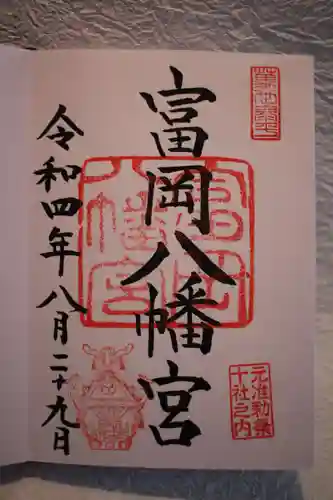 富岡八幡宮
令和四年八月二十九日
富岡八幡宮
元准勅祭
十社之内